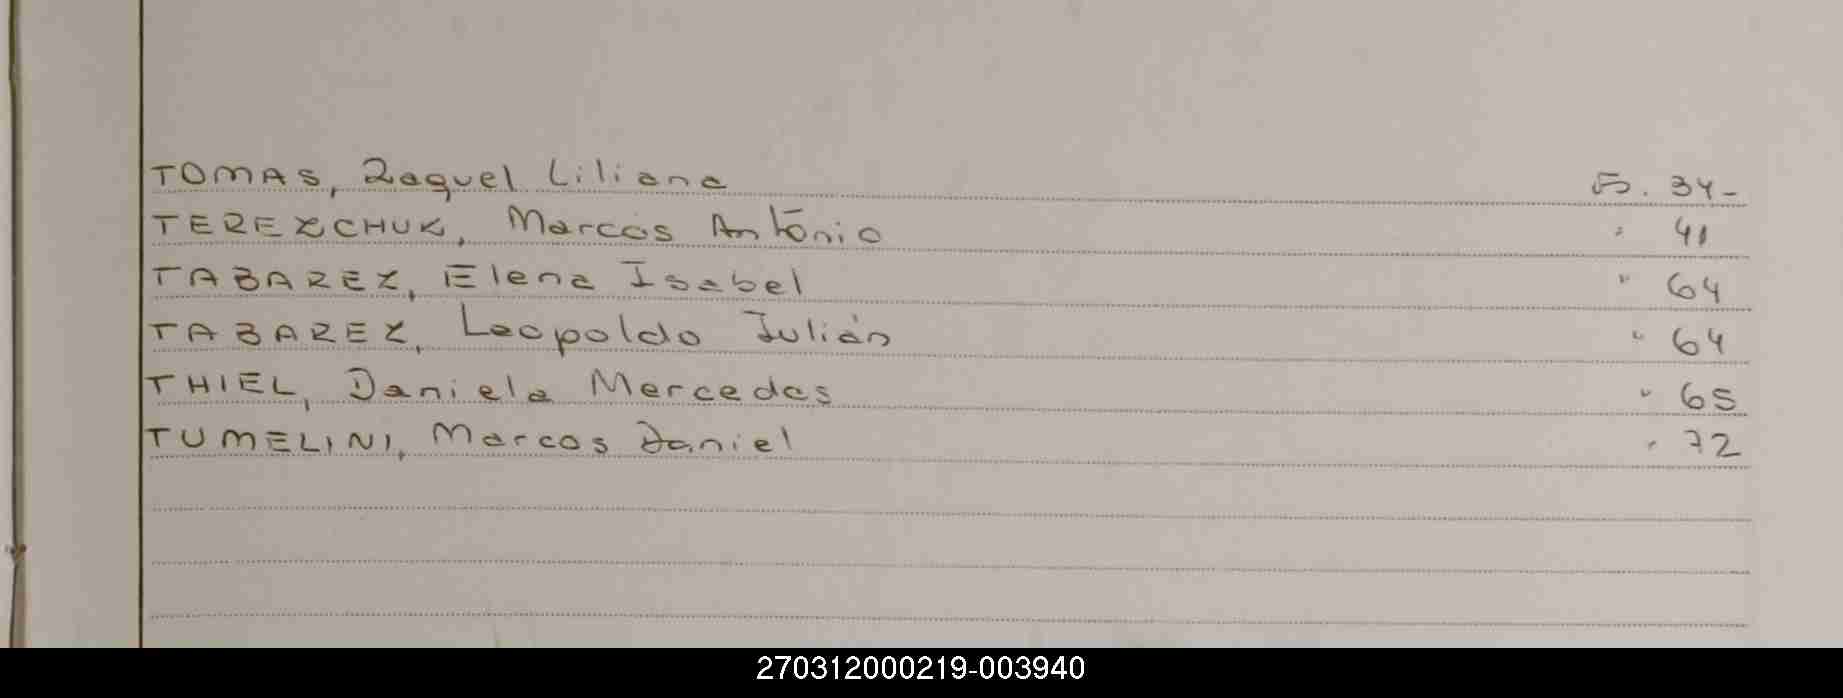 TOMAS, Raquel Liliana Fs. 34-
TEREZCHUK, Marcos Antonio " 41
TABAREZ, Elena Isabel " 64
TABAREZ, Leopoldo Julián " 64
THIEL, Daniela Mercedes " 65
TUMELINI, Marcos Daniel " 72
270312000219-003940